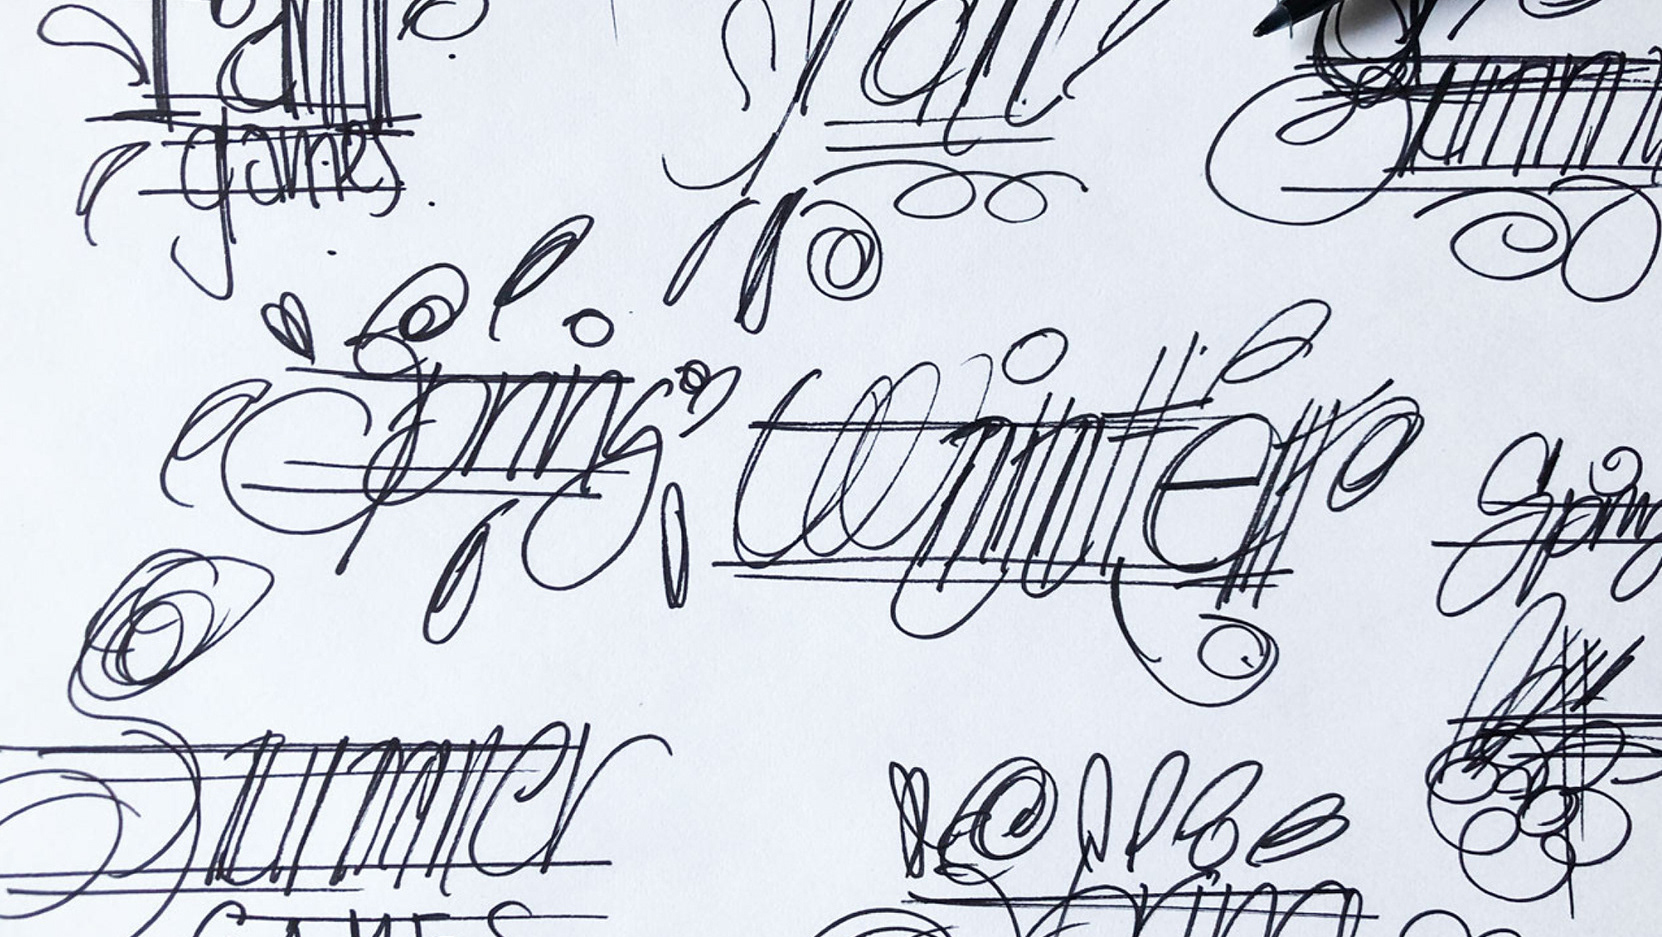 Fall
games
Fall
Summ
Spring
Winter
Spring
Summer
GAMES
Spring